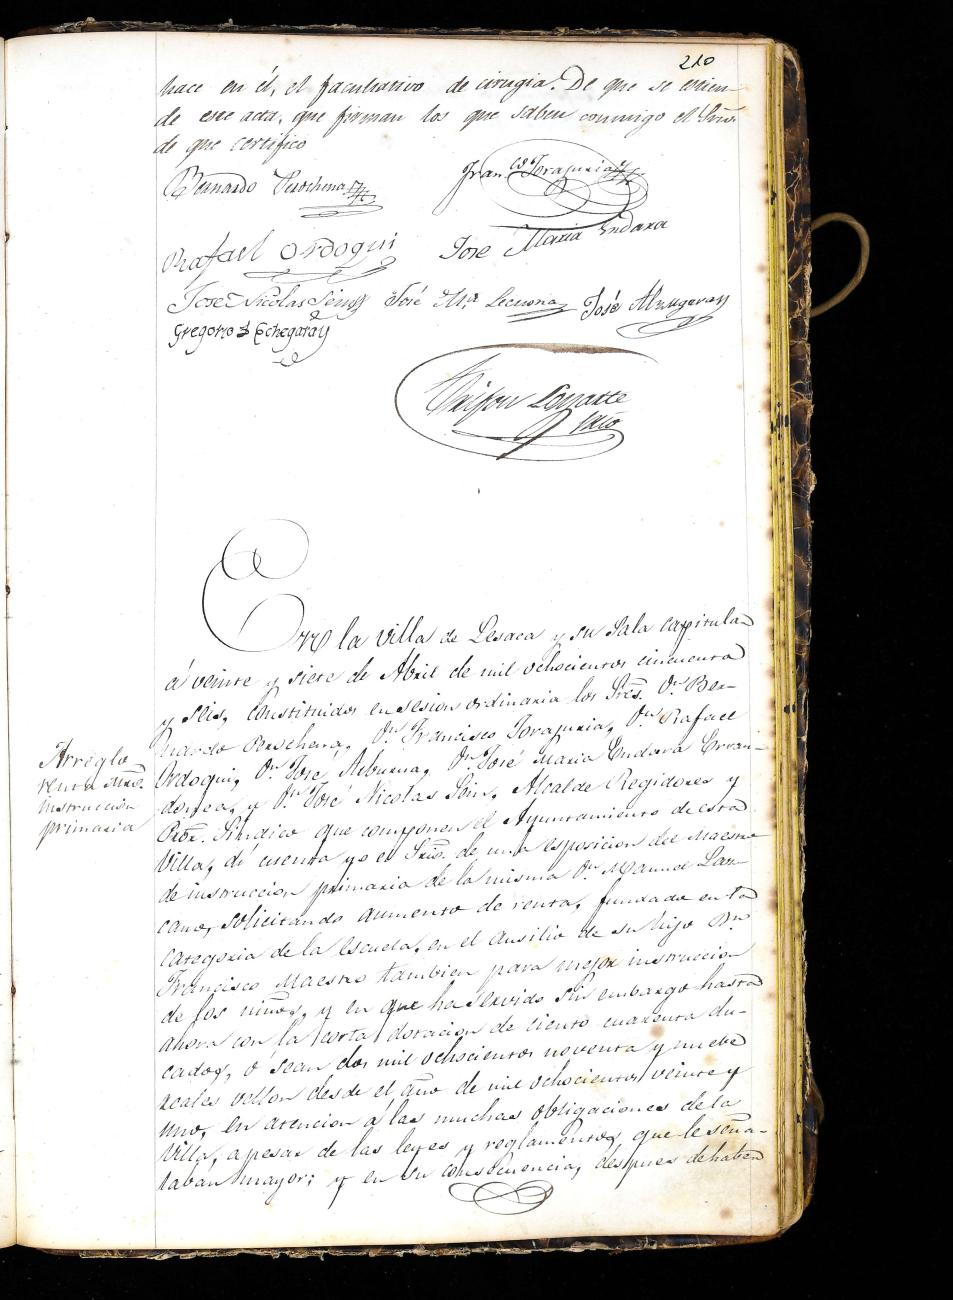 210
hace en él, el facultativo de cirugia. De que se estien-
de este acta, que firman los que saben conmigo el Srio.
de que certifico
Bernardo Perochena
Fran.co Torajuria
Rafael Ordoqui
José Maria Endara
José Nicolas Soin
José Ma Lecuona
José Altzugaray
Gregorio Echegaray
Lonarte
Srio
En la villa de Lesaca y su Sala Capitular
á veinte y siete de Abril de mil ochocientos cincuenta
y seis, constituidos en sesion ordinaria los Sres. Dn. Ber-
nardo Perochena, Dn. Francisco Torajuria, Dn. Rafael
Ordoqui, Dn. José, Dn. José Maria Endara Erran-
donea, y Dn. José Nicolas Soin, Alcalde Regidores y
Pror. Sindico que componen el Ayuntamiento de esta
Villa, dí cuenta yo el Srio. de una esposicion del Maestro
de instruccion primaria de la misma Dn. Manuel Laz-
cano, solicitando aumento de renta, fundado en la
categoria de la escuela, en el ausilio de su hijo Dn.
Francisco Maestro tambien para mejor instruccion
de los niños, y en que ha servido sin embargo hasta
ahora con la corta dotacion de ciento cuarenta du-
cados, ó sean dos mil ochocientos noventa y nueve
reales vellon desde el año de mil ochocientos veinte y
uno, en atencion á las muchas obligaciones de la
Villa, apesar de las leyes y reglamentos, que le seña-
laban mayor; y en su consecuencia, despues de haber
Arreglo
renta Mtro.
instruccion
primaria